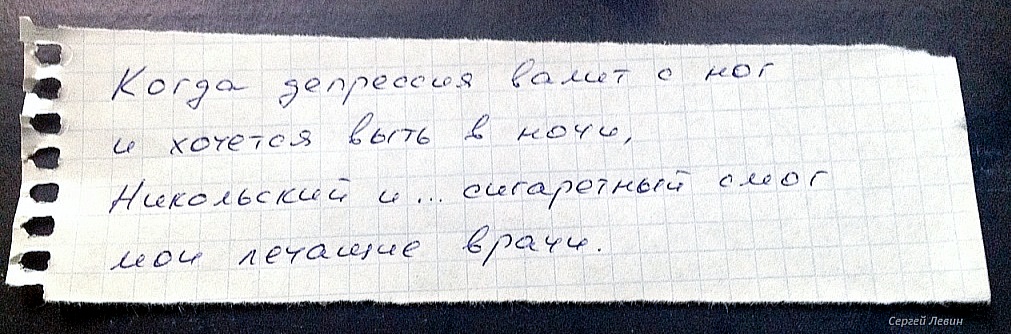 Когда депрессия валит с ног
и хочется выть в ночи,
Никольский и... сигаретный смог
мои лечащие врачи.
Сергей Левин